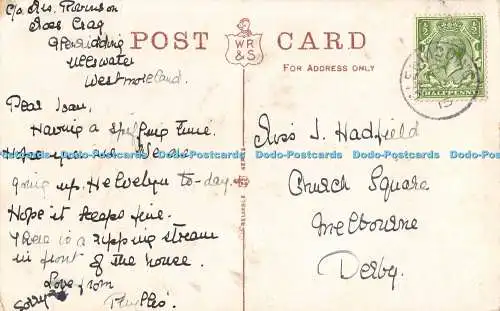 c/o Mrs. Robinson
Ross Crag
Glenridding
Ullswater
Westmoreland.
Dear Joan,
Having a spiffing time.
Hope you are. We are
going up Helvelyn to-day.
Hope it keeps fine.
There is a ripping stream
in front of the house.
Love from
Phyllis
POST CARD
WR
& S
FOR ADDRESS ONLY
RELIABLE SERIES
HALFPENNY
15
Miss J. Hadfield
Church Square
Melbourne
Derby.
Dodo-Postcards Dodo-Postcards Dodo-Postcards Dodo-Postcards Dodo-Postcards